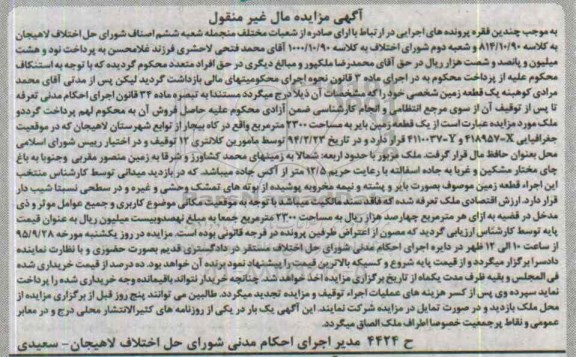 آگهی مزایده مال غیر منقول
به موجب چندین فقره پرونده های اجرایی در ارتباط با آرای صادره از شعبات مختلف منجمله شعبه ششم اصناف شورای حل اختلاف لاهیجان
به کلاسه ۸۱۴/۱۰/۹۰ و شعبه دوم شورای اختلاف به کلاسه ۱۰۰۰/۱۰/۹۰ آقای محمد فتحی لاحشری فرزند غلامحسن به پرداخت نود و هشت
میلیون و پانصد و شصت هزار ریال در حق آقای محمدرضا ملکپور و مبالغ دیگری در حق افراد متعدد محکوم گردیده که با توجه به استنکاف
محکوم علیه از پرداخت محکوم به در اجرای ماده ۳ قانون نحوه اجرای محکومیتهای مالی بازداشت گردید لیکن پس از مدتی آقای محمد
مرادی کوهبنه یک قطعه زمین شخصی خود را که مشخصات آن ذیلا درج میگردد مستندا به تبصره ماده ۳۴ قانون اجرای احکام مدنی تعرفه
تا پس از توقیف آن از سوی مرجع انتظامی و انجام کارشناسی ضمن آزادی محکوم علیه حاصل فروش آن به محکوم لهم پرداخت گردد و
ملک مورد مزایده عبارت است از یک قطعه زمین بایر به مساحت ۲۳۰۰ مترمربع واقع در کاه بیجار از توابع شهرستان لاهیجان که در موقعیت
جغرافیایی X-۴۱۸۹۵۷ و Y-۴۱۱۰۰۳۷ قرار دارد و در تاریخ ۹۴/۲/۲۳ توسط مامورین کلانتری ۱۲ توقیف و در اختیار رییس شورای اسلامی
محل بعنوان حافظ مال قرار گرفت. ملک مزبور با حدود اربعه: شمالا به زمینهای محمد کشاورز و شرقا به زمین منصور مقربی وجنوبا به باغ
چای مختار مشکین و غربا به جاده اسفالته با رعایت حریم ۱۲/۵ متر از آکس جاده میباشد. که در بازدید میدانی توسط کارشناس منتخب
این اجراء قطعه زمین موصوف بصورت بایر و پشته و نیمه مخروبه پوشیده از بوته های تمشک وحشی و غیره و در سطحی نسبتا شیب دار
قرار دارد. ارزش اقتصادی ملک تعرفه شده که فاقد سند مالکیت میباشد با توجه به موقعیت مکانی موضوع کاربری و جمیع عوامل موثر و ذی
مدخل در قضیه به ازای هر مترمربع چهارصد هزار ریال به مساحت ۲۳۰۰ مترمربع جمعا به مبلغ نهصدوبیست میلیون ریال به عنوان قیمت
پایه توسط کارشناس ارزیابی گردید که مصون از اعتراض طرفین پرونده در فرجه قانونی بوده است. مزایده در روز یکشنبه مورخه ۹۵/۹/۲۸
از ساعت ۱۰ الی ۱۲ ظهر در دایره اجرای احکام مدنی شورای حل اختلاف مستقر در دادگستری قدیم بصورت حضوری و با نظارت نماینده
دادسرا برگزار میگردد و از قیمت پایه شروع و کسیکه بالاترین قیمت را پیشنهاد نمود برنده آن خواهد بود. ده درصد از قیمت خریداری شده
فی المجلس و بقیه ظرف مدت یکماه از تاریخ برگزاری مزایده اخذ خواهد شد. چنانچه خریدار نتواند باقیمانده وجه خریداری شده را پرداخت
نماید سپرده وی پس از کسر هزینه های عملیات اجراء توقیف و مزایده تجدید میگردد. طالبین می توانند پنج روز قبل از برگزاری مزایده از
محل ملک بازدید و در صورت تمایل در مزایده شرکت نمایند. این آگهی یک بار در یکی از روزنامه های کثیرالانتشار محلی درج و در معابر
عمومی و نقاط پرجمعیت خصوصا اطراف ملک الصاق میگردد.
ح ۴۴۲۴ مدیر اجرای احکام مدنی شورای حل اختلاف لاهیجان- سعیدی